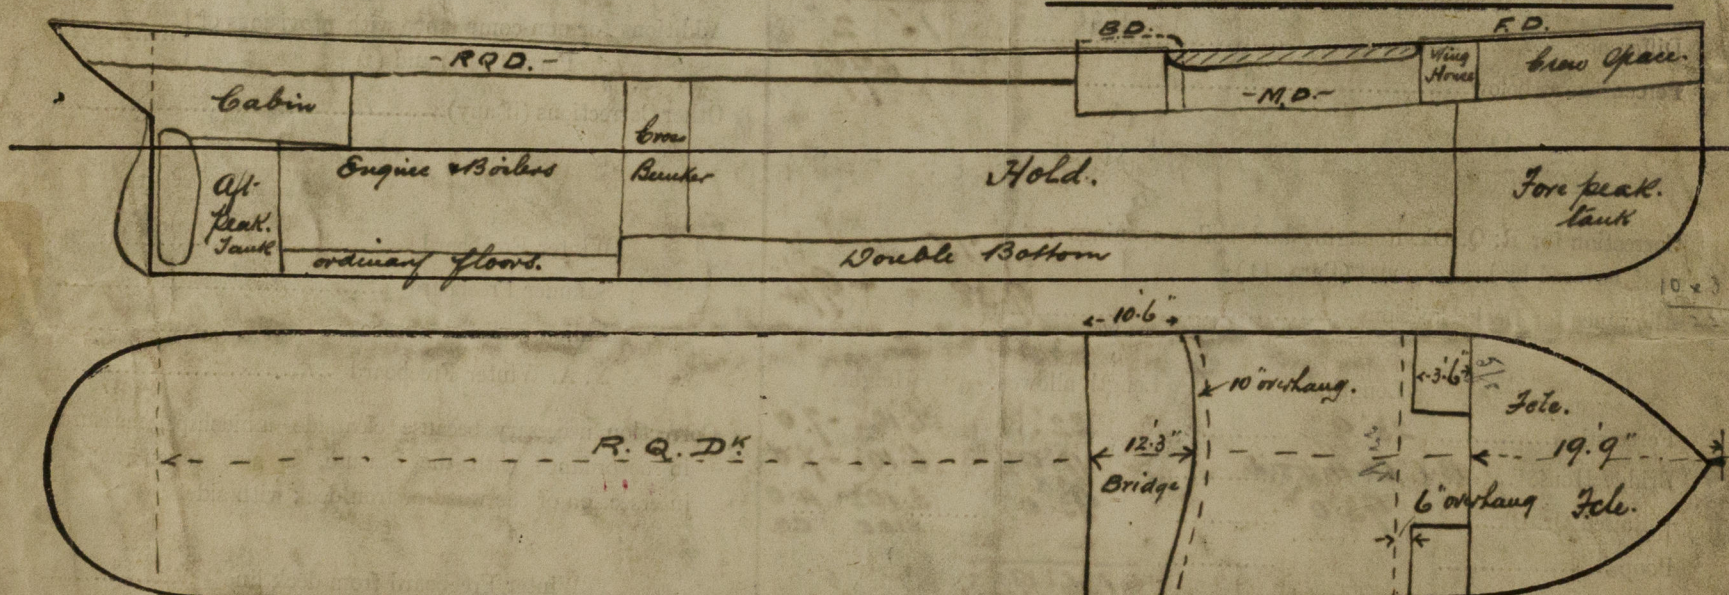 B.D.
F.D.
-R.Q.D.-
Wing
House
Crew Space.
Cabin
-M.D.-
Cross
Bunker
Engine & Boilers
Hold.
Aft
Peak.
Tank
Fore peak.
tank
ordinary floors.
Double Bottom
10'.6"
10" overhang.
3'.6"
Fcle.
R. Q. Dᴷ.
12'.3"
Bridge
19'.9"
6" overhang
Fcle.